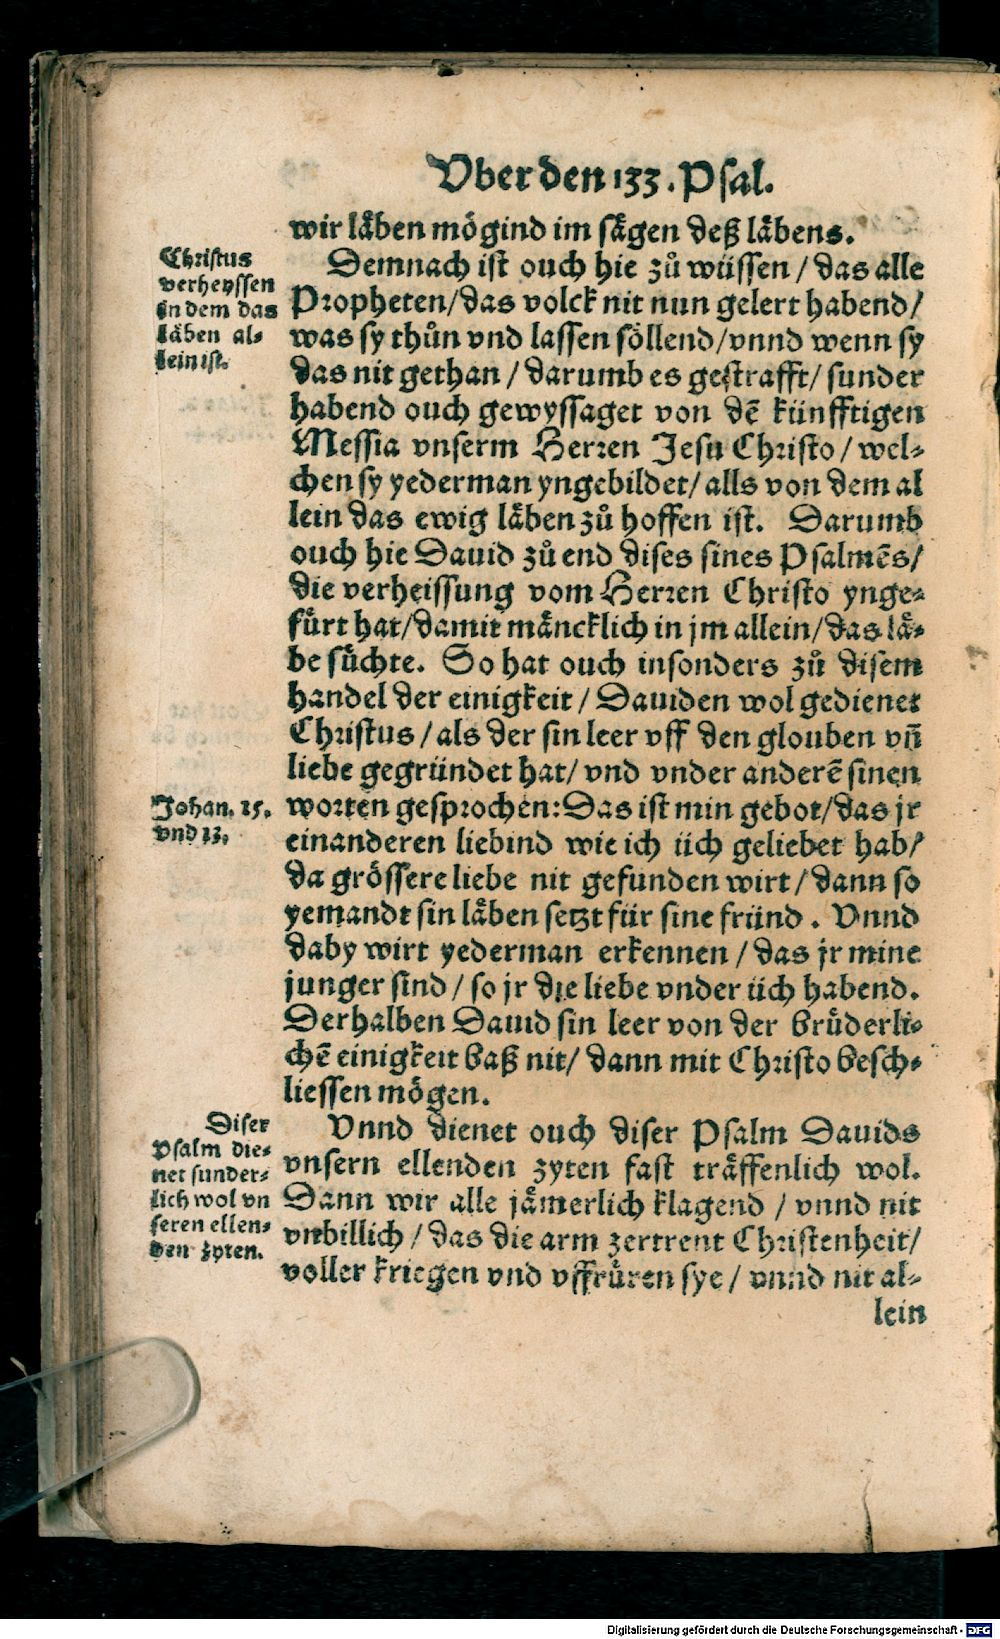 Vber den 133. Psal.
wir låben mögind im sägen deß läbens.
Christus
verheyssen
in dem das
läben al-
lein ist.
Demnach ist ouch hie zů wüssen / das alle
Propheten/das volck nit nun gelert habend/
was sy thůn vnd lassen söllend/vnnd wenn sy
das nit gethan / darumb es gestrafft/ sunder
habend ouch gewyssaget von dē künfftigen
Messia vnserm Herren Jesu Christo / wel-
chen sy yederman yngebildet/ alls von dem al
lein das ewig läben zů hoffen ist. Darumb
ouch hie Dauid zů end dises sines Psalmēs/
die verheissung vom Herren Christo ynge-
fůrt hat/damit mäncklich in jm allein/das lä-
be sůchte. So hat ouch insonders zů disem
handel der einigkeit / Dauiden wol gedienet
Christus / als der sin leer vff den glouben vñ
liebe gegründet hat/ vnd vnder anderē sinen
Johan. 15.
vnd 13.
worten gesprochen: Das ist min gebot/das jr
einanderen liebind wie ich üch geliebet hab/
da grössere liebe nit gefunden wirt / dann so
yemandt sin läben setzt für sine fründ. Vnnd
daby wirt yederman erkennen / das jr mine
junger sind / so jr die liebe vnder üch habend.
Derhalben Dauid sin leer von der brůderli-
chē einigkeit baß nit/ dann mit Christo besch-
liessen mögen.
Diser
Psalm die-
net sunder-
lich wol vn
seren ellen-
den zyten.
Vnnd dienet ouch diser Psalm Dauids
vnsern ellenden zyten fast träffenlich wol.
Dann wir alle jämerlich klagend / vnnd nit
vnbillich / das die arm zertrent Christenheit/
voller kriegen vnd vffrůren sye / vnnd nit al-
lein
Digitalisierung gefördert durch die Deutsche Forschungsgemeinschaft - DFG